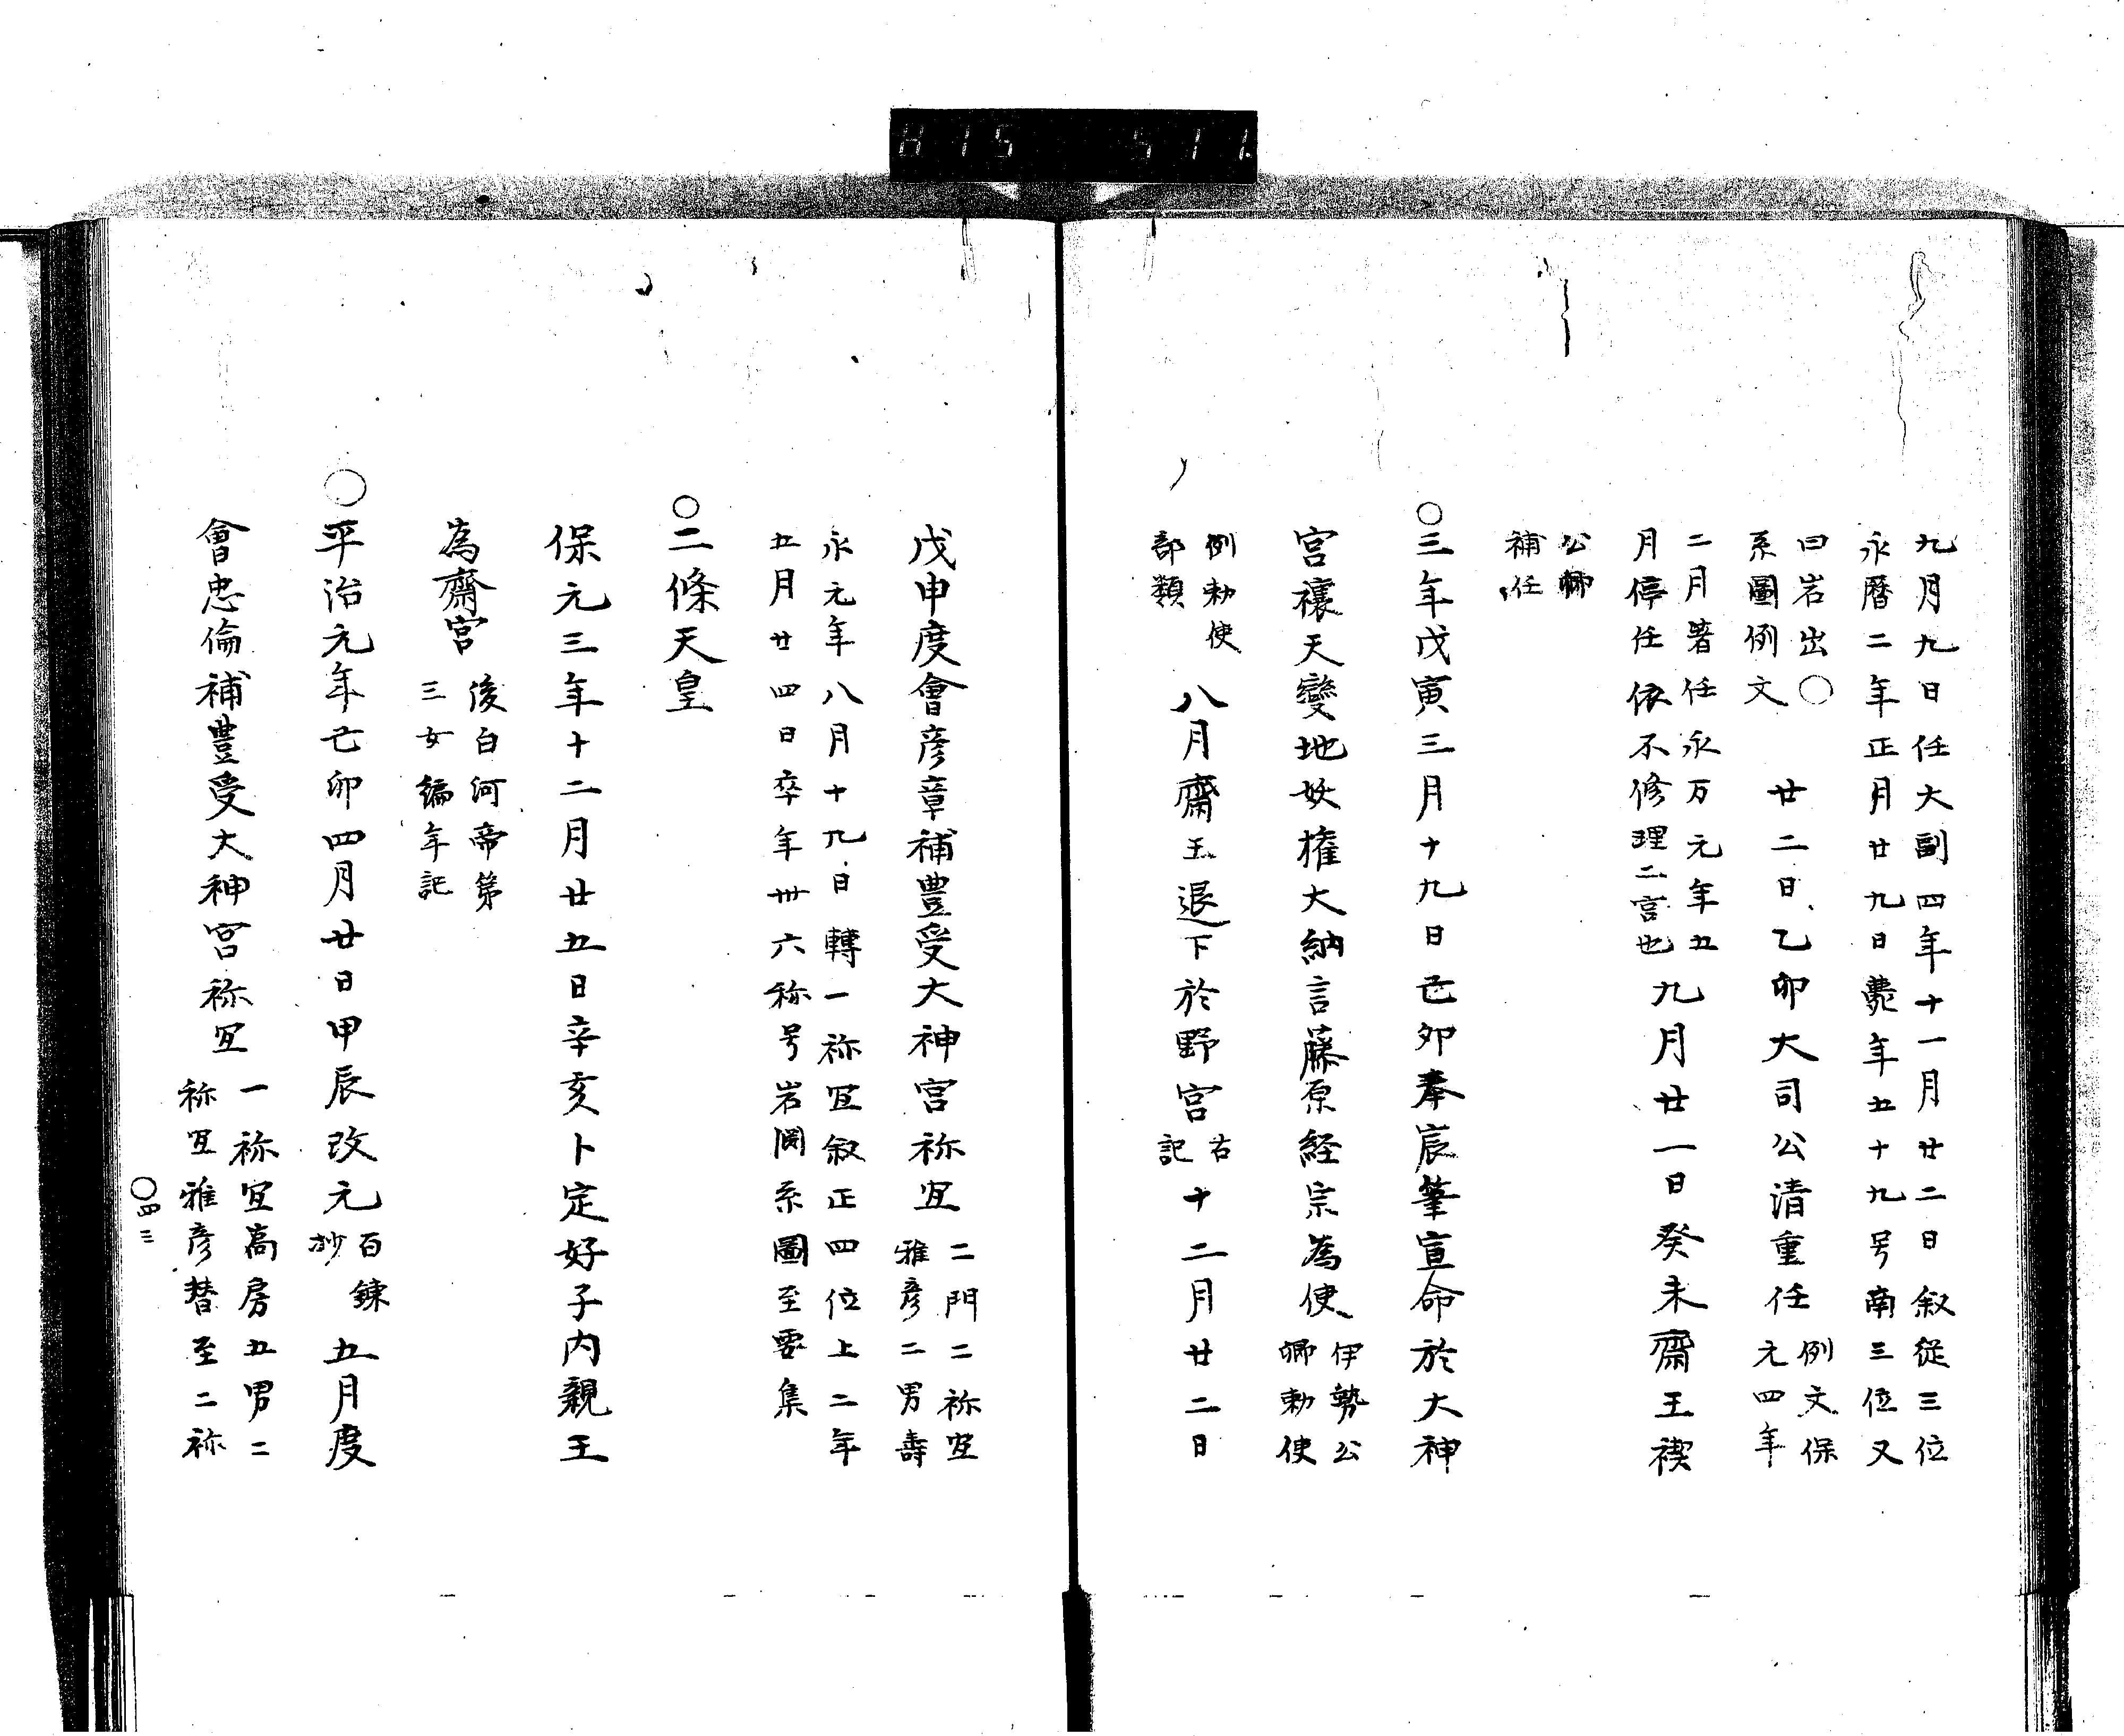 九月九日任大副四年十一月廿二日叙従三位
永暦二年正月廿九日薨年五十九号南三位又
曰岩出○
系圖例文
廿二日乙卯大司公清重任
例文保
元四年
二月著任永万元年五
月停任依不修理二宮也
九月廿一日癸未齋王禊
公卿
補任
○三年戊寅三月十九日己夘奉宸筆宣命於大神
宮禳天變地妖権大納言藤原経宗為使
伊勢公
卿勅使
例勅使
部類
八月齋王退下於野宮
右
記
十二月廿二日
戊申度會彦章補豊受大神宮祢宜
二門二祢宜
雅彦二男壽
永元年八月十九日轉一祢宜叙正四位上二年
五月廿四日卒年卅六称号岩渕系圖至要集
○二條天皇
保元三年十二月廿五日辛亥卜定好子内親王
為齋宮
後白河帝第
三女編年記
○平治元年己卯四月廿日甲辰改元
百錬
抄
五月度
會忠倫補豊受大神宮祢宜
一祢宜高房五男二
祢宜雅彦替至二祢
○四三
H15 511.